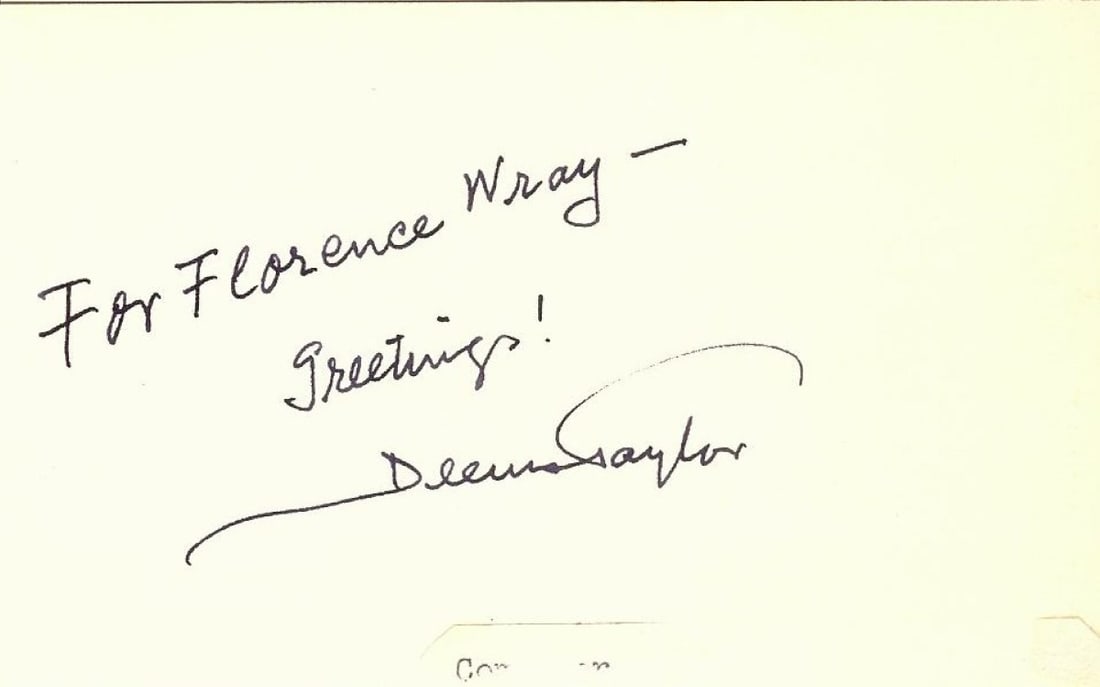 For Florence Wray —
Greetings!
Deems Taylor